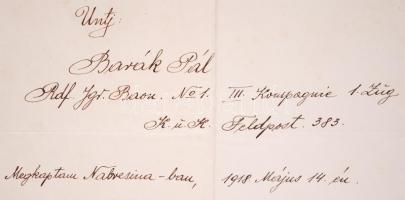 Untj:
Barák Pál
Rdf Jgr. Baon. No 1. III. Kompagnie 1. Zug
K. u. K. Feldpost. 383.
Megkaptam Nabresina-ban, 1918 Május 14. én.